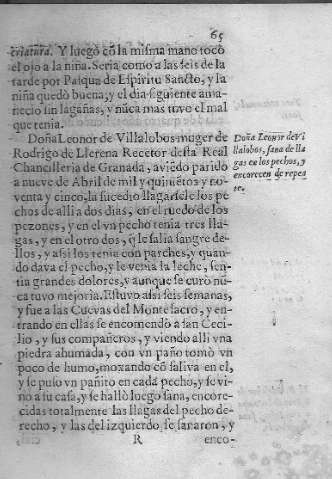 65
criatura. Y luego cõ la misma mano tocò
el ojo a la niña. Seria como a las seis de la
tarde por Pasqua de Espiritu Sancto, y la
niña quedò buena, y el dia siguiente ama-
necio sin lagañas, y nũca mas tuvo el mal
que tenia.
Doña Leonor de Villalobos muger de
Rodrigo de Llerena Recetor desta Real
Chancilleria de Granada, aviẽdo parido
a nueve de Abril de mil y quiniẽtos y no-
venta y cinco, la sucedio llagarsele los pe
chos de alli a dos dias, en el ruedo de los
pezones, y en el vn pecho tenia tres lla-
gas, y en el otro dos, q̃ le salia sangre de-
llos, y assi los tenia con parches, y quan-
do dava el pecho, y le venia la leche, sen-
tia grandes dolores, y aunque se curò nũ-
ca tuvo mejoria. Estuvo assi seis semanas,
y fue a las Cuevas del Monte sacro, y en-
trando en ellas se encomendò a san Ceci-
lio, y sus compañeros, y viendo alli vna
piedra ahumada, con vn paño tomò vn
poco de humo, moxando cõ saliva en el,
y se puso vn pañito en cadà pecho, y se vi-
no a su casa, y se hallò luego sana, encore-
cidas totalmente las llagas del pecho de-
recho, y las del izquierdo se sanaron, y
R
enco-
Doña Leonor de Vi
llalobos, sana de lla
gas en los pechos, y
encorecen de repen
te.